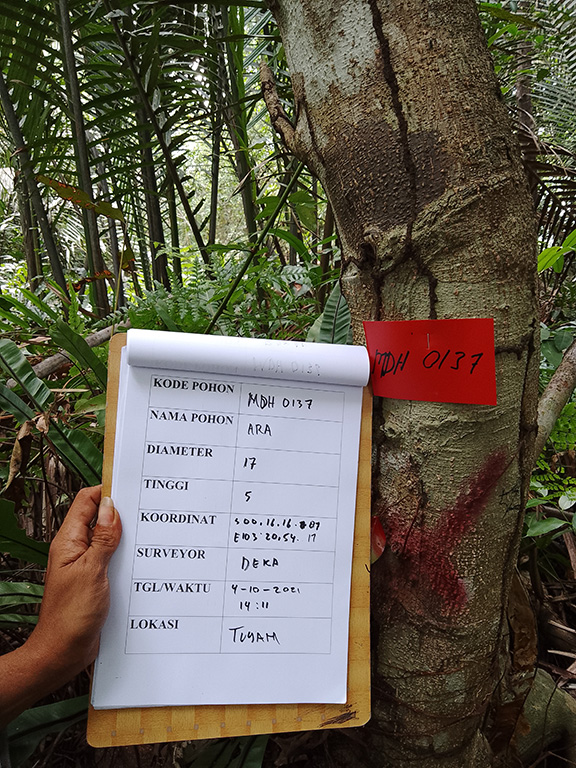 KODE POHON MDH 0137
NAMA POHON ARA
DIAMETER 17
TINGGI 5
KOORDINAT S00.16.16.
E103.20.54. 17
SURVEYOR DEKA
TGL/WAKTU 4-10-2021
14:11
LOKASI TUGAM
MDH 0137